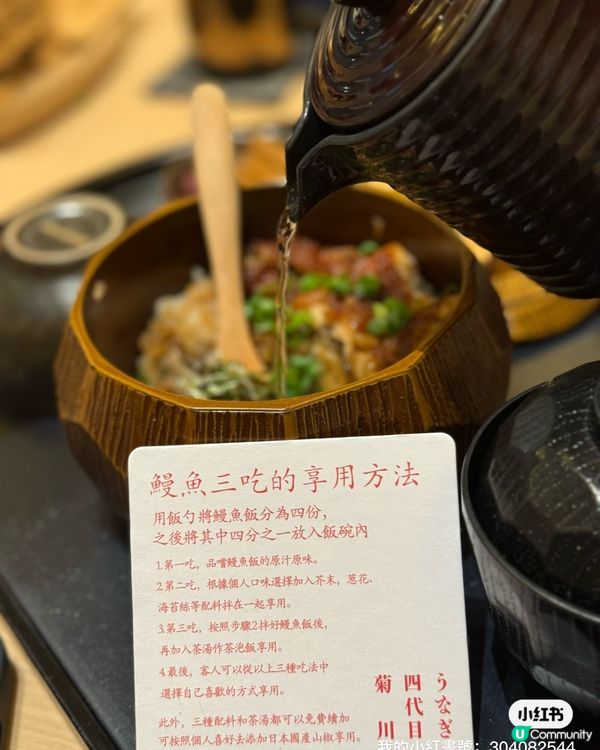 鰻魚三吃的享用方法
用飯勺將鰻魚飯分為四份,
之後將其中四分之一放入飯碗內
1.第一吃，品嚐鰻魚飯的原汁原味。
2.第二吃，根據個人口味選擇加入芥末，蔥花、
海苔絲等配料拌在一起享用。
3.第三吃，按照步驟2拌好鰻魚飯後，
再加入茶湯作茶泡飯享用。
4.最後，客人可以從以上三種吃法中
選擇自己喜歡的方式享用。
此外，三種配料和茶湯都可以免費續加
可按照個人喜好去添加日本國產山椒享用。
うなぎ
四代目
菊川
小红书
U Community
我的小紅書號：304082544